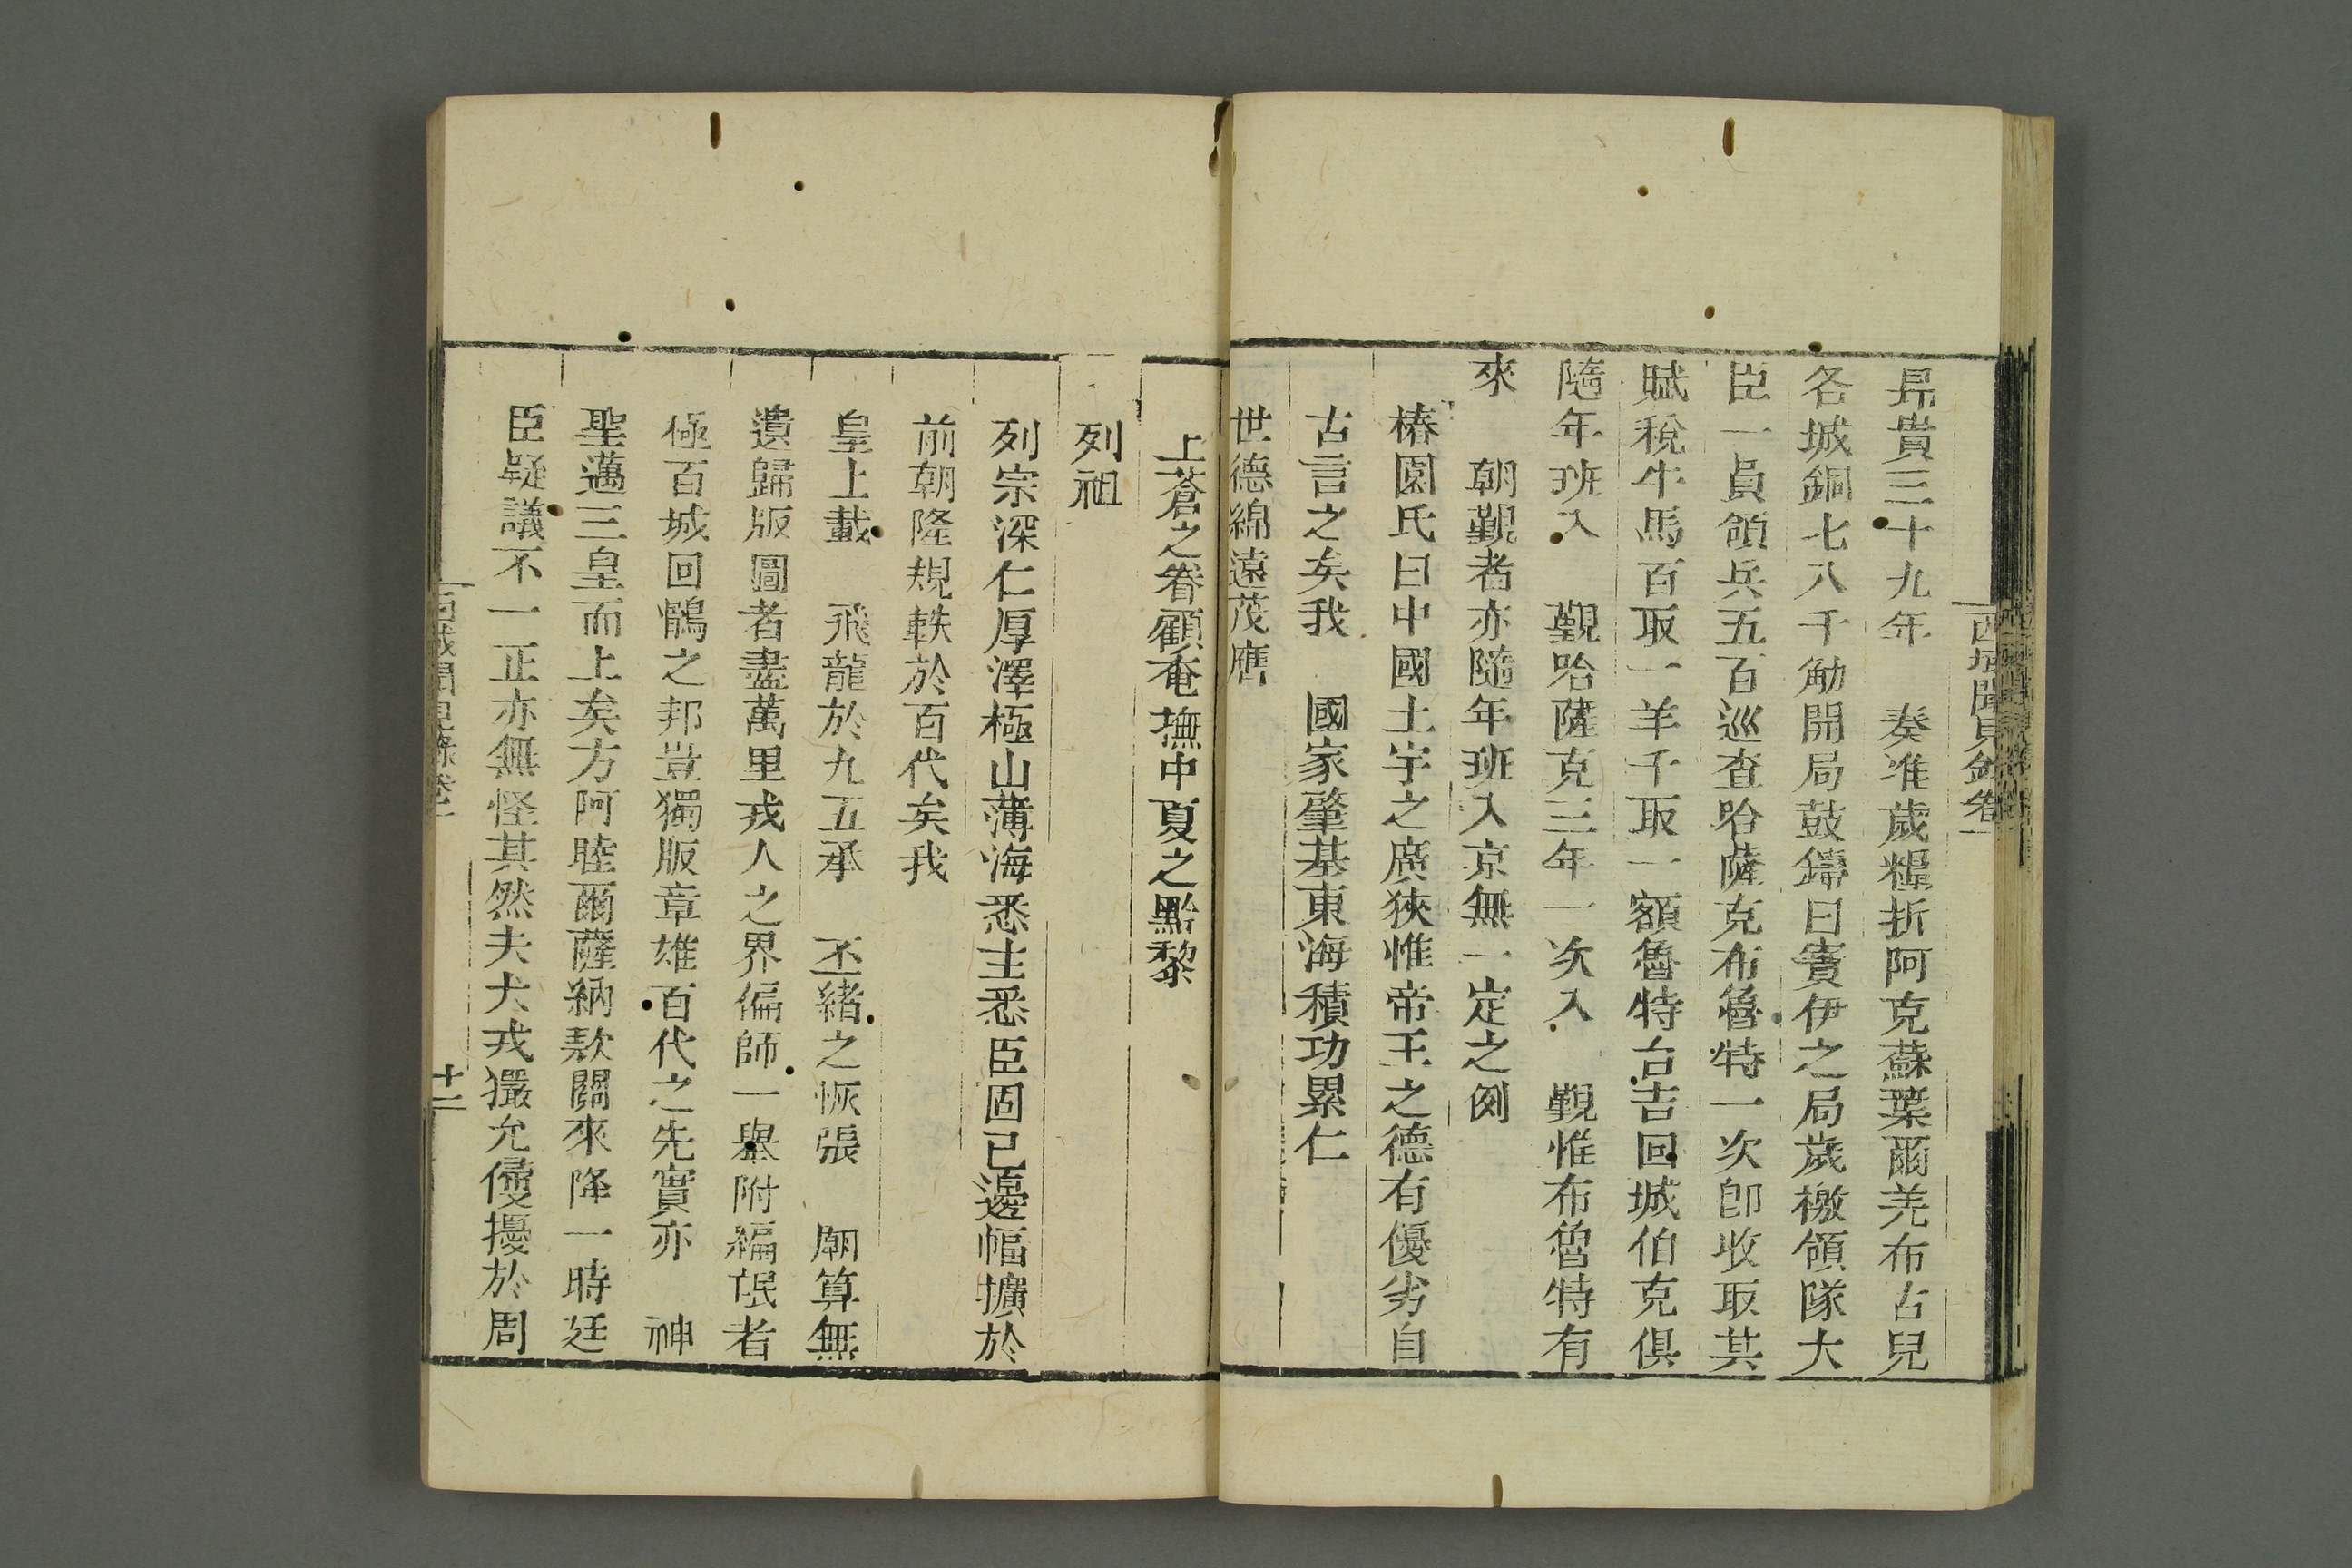 西域聞見錄卷一
昻貴三十九年　奏准歲糧折阿克蘇葉爾羌布古兒
各城銅七八千觔開局鼓鑄曰寳伊之局歲檄領隊大
臣一員領兵五百巡查哈薩克布魯特一次卽收取其
賦稅牛馬百取一羊千取一額魯特台吉回城伯克俱
隨年班入　覲哈薩克三年一次入　覲惟布魯特有
來　朝覲者亦隨年班入京無一定之例
椿園氏曰中國土宇之廣狹惟帝王之德有優劣自
古言之矣我　國家肇基東海積功累仁
世德綿遠茂膺
上蒼之眷顧奄撫中夏之黔黎
列祖
列宗深仁厚澤極山薄海悉主悉臣固已邊幅擴於
前朝隆規軼於百代矣我
皇上載　飛龍於九五承　丕緒之恢張　廟算無
遺歸版圖者盡萬里戎人之界偏師一舉附編氓者
極百城回鶻之邦豈獨版章雄百代之先實亦　神
聖邁三皇而上矣方阿睦爾薩納款關來降一時廷
臣疑議不一正亦無怪其然夫犬戎玁允儘擾於周
西域聞見錄卷一
十二